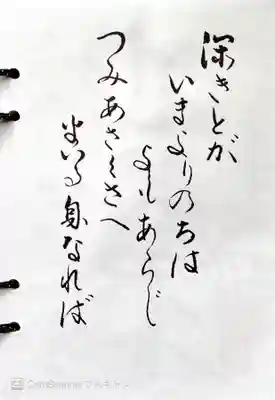 深きとが
いまよりのちは
よもあらじ
つみあさくさへ
まいる身なれば
CamScanner でスキャン